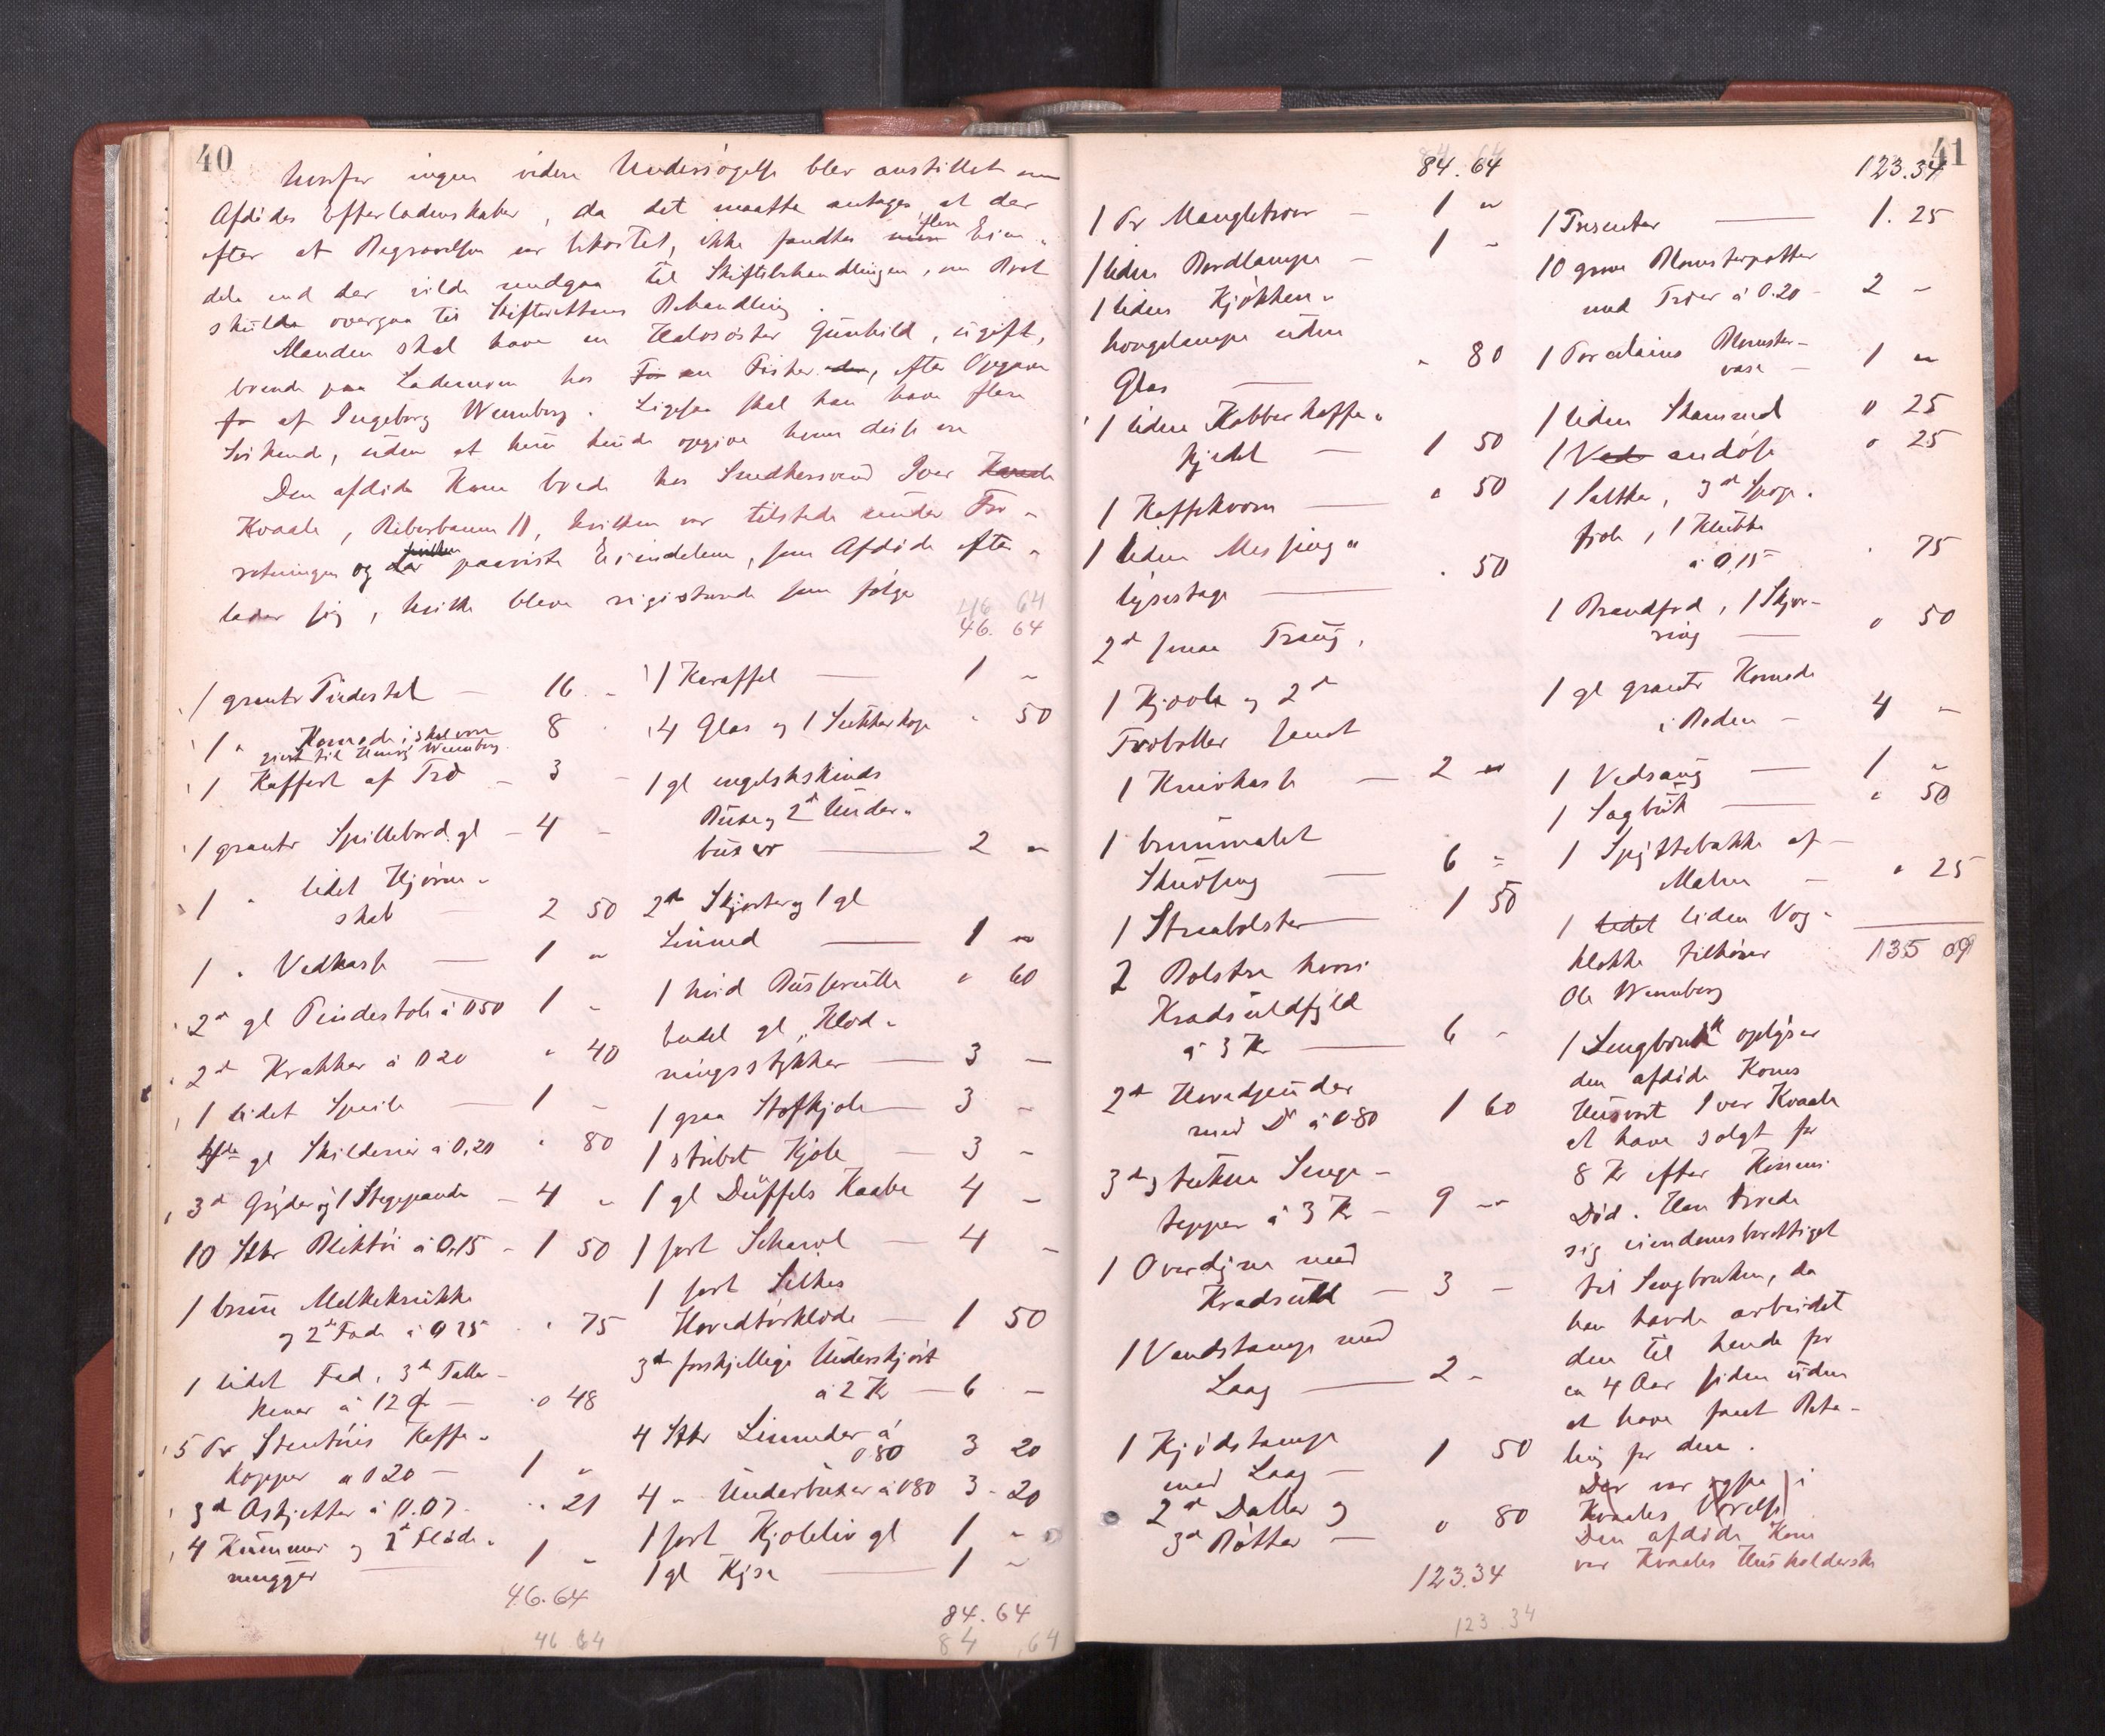 40
hvorfor ingen videre Undersøgelse blev anstillet om
Afdødes Efterladenskaber, da det maatte antages at der
efter at Begravelsen var bekostet, ikke fandtes flere Eien-
dele end der vilde medgaa til Skiftebehandlingen, om Boet
skulde overgaa til Skifterettens Behandling.
Manden skal have en Halvsøster Gunhild, ugift,
boende paa Lademoen hos en Fisker, efter Opgave
af Ingeborg Wennberg. Ligesaa skal han have flere
Søskende, uden at hun kunde opgive hvem disse er
Den afdøde Kone boede hos Snedkersvend Iver
Kvaale, Biberbauen 11, hvilken var tilstede under For-
retningen og paaviste Eiendelene, som Afdøde efter-
lader sig, hvilke bleve registrerede som følger
46 64
46. 64
1 grantr Pindestol — 16 "
1 " Komode i skal være
givet til Wennberg 8 "
1 Koffert af Træ — 3 —
1 grantr Spillebord gl — 4 —
1 " lidet Hjørne-
skab — 2 50
1 " Vedkasse — 1 "
2 d gl Pindestole à 0 50 1 -
2 d Krakker à 0 20 " 40
1 lidet Speil — 1 -
4 de gl Skilderier à 0,20 " 80
3 d Gryder og 1 Stegepande — 4 "
10 Stkr Bliktøi à 0,15 - 1 50
1 brun Melkekrukke
og 2 d Fade à 0 25 " 75
1 lidet Fad, 3 d Taller-
kener à 12 Ø — 0 48
5 Pr Stentøis Kaffe-
kopper à 0 20 — 1 "
3 d Asjetter à 0.07 - " 21
4 Kummer og 2 d Fløde-
mugger — 1 -
46.64
46 64
1 Karaffel — 1 -
4 Glas og 1 Sukkerkop " 50
1 gl engelskskinds
Buxe og 2 d Under-
buxer — 2 "
2 d Skjorter og 1 gl
Linned — 1 "
1 hvid Buserulle " 60
hvidel gl Klæd-
ningsstykker — 3 —
1 graa Stofkjole — 3 -
1 stribet Kjole — 3 -
1 gl Düffels Kaabe 4 -
1 sort Schavl — 4 -
1 sort Silkes
Hovedtørklæde — 1 50
3 d forskjellige Underskjørt
à 2 Kr — 6 -
4 Stkr Linneder à
0 80 3 20
4 " Underbuxer à 0 80 3 - 20
1 sort Kjoleliv gl 1 "
1 gl Kjse — 1 -
84. 64
84 ,64
41
84.64
1 Pr Mangletræer — 1 "
1 liden Bordlampe — 1 -
1 liden Kjøkken-
hængelampe uden
Glas — " 80
1 liden Kobberkaffe-
kjedel — 1 50
1 Kaffekværn — " 50
1 liden Messing-
lysestage — " 50
2 d smaa Traug,
1 Kjævle og 2 d
Træboller samt
1 Knivkasse — 2 "
1 brunmalet
Skuvseng — 6 =
1 Straabolster — 1 50
2 Bolstre hvori
Kraduldfyld
à 3 Kr — 6 -
2 d Hovedpuder
med Do à 0 80 1 60
3 d strikne Senge-
tepper à 3 Kr — 9 —
1 Overdyne med
Kraduld — 3 -
1 Vandstampe med
Laag — 2 -
1 Kjødstampe
med Laag — 1 50
2 d Daller og
3 d Bøtter — " 80
123.34
123 34
123.34
1 Presenter — 1. 25
10 grove Blomsterpotter
med Træer à 0.20 - 2 -
1 Porcelains Blomster-
vase — 1 "
1 liden Skammel " 25
1 andøse " 25
1 Saltkar, 3 d
, 1 Klubbe
à 0,15 " 75
1 Brandfad, 1 Skjør-
ring — " 50
1 gl grantr Komode
i Boden — 4 -
1 Vedsaug — 1 "
1 Sagbuk — " 50
1 Spyttebakke af
Malm — " 25
1 liden Væg-
klokke tilhører
Ole Wennberg
135 09
1 Sengbænk oplyser
den afdøde Kones
Husvært Iver Kvaale
at have solgt for
8 Kr efter Konens
Død. Han troede
sig eiendomsberettiget
til Sengbænken, da
han havde arbeidet
den til hende for
ca 4 Aar siden uden
at have faaet Beta-
ling for den.
Der var ogsaa i
Kvaales Værelse
Den afdøde Kone
var Kvaales Husholderske